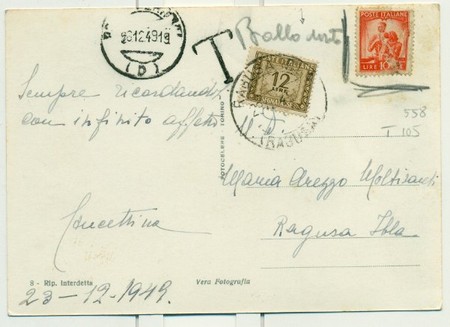 23.12.49.19
(D)
T
Bollo
POSTE ITALIANE
LIRE 10
12
LIRE
RAGUSA
(RAGUSA)
558
T 105
Sempre ricordando
con infinito affetto
Lucettina
Maria Arezzo
Ragusa Ibla
FOTOCELERE TORINO
8 - Rip. Interdetta
Vera Fotografia
23-12-1949.